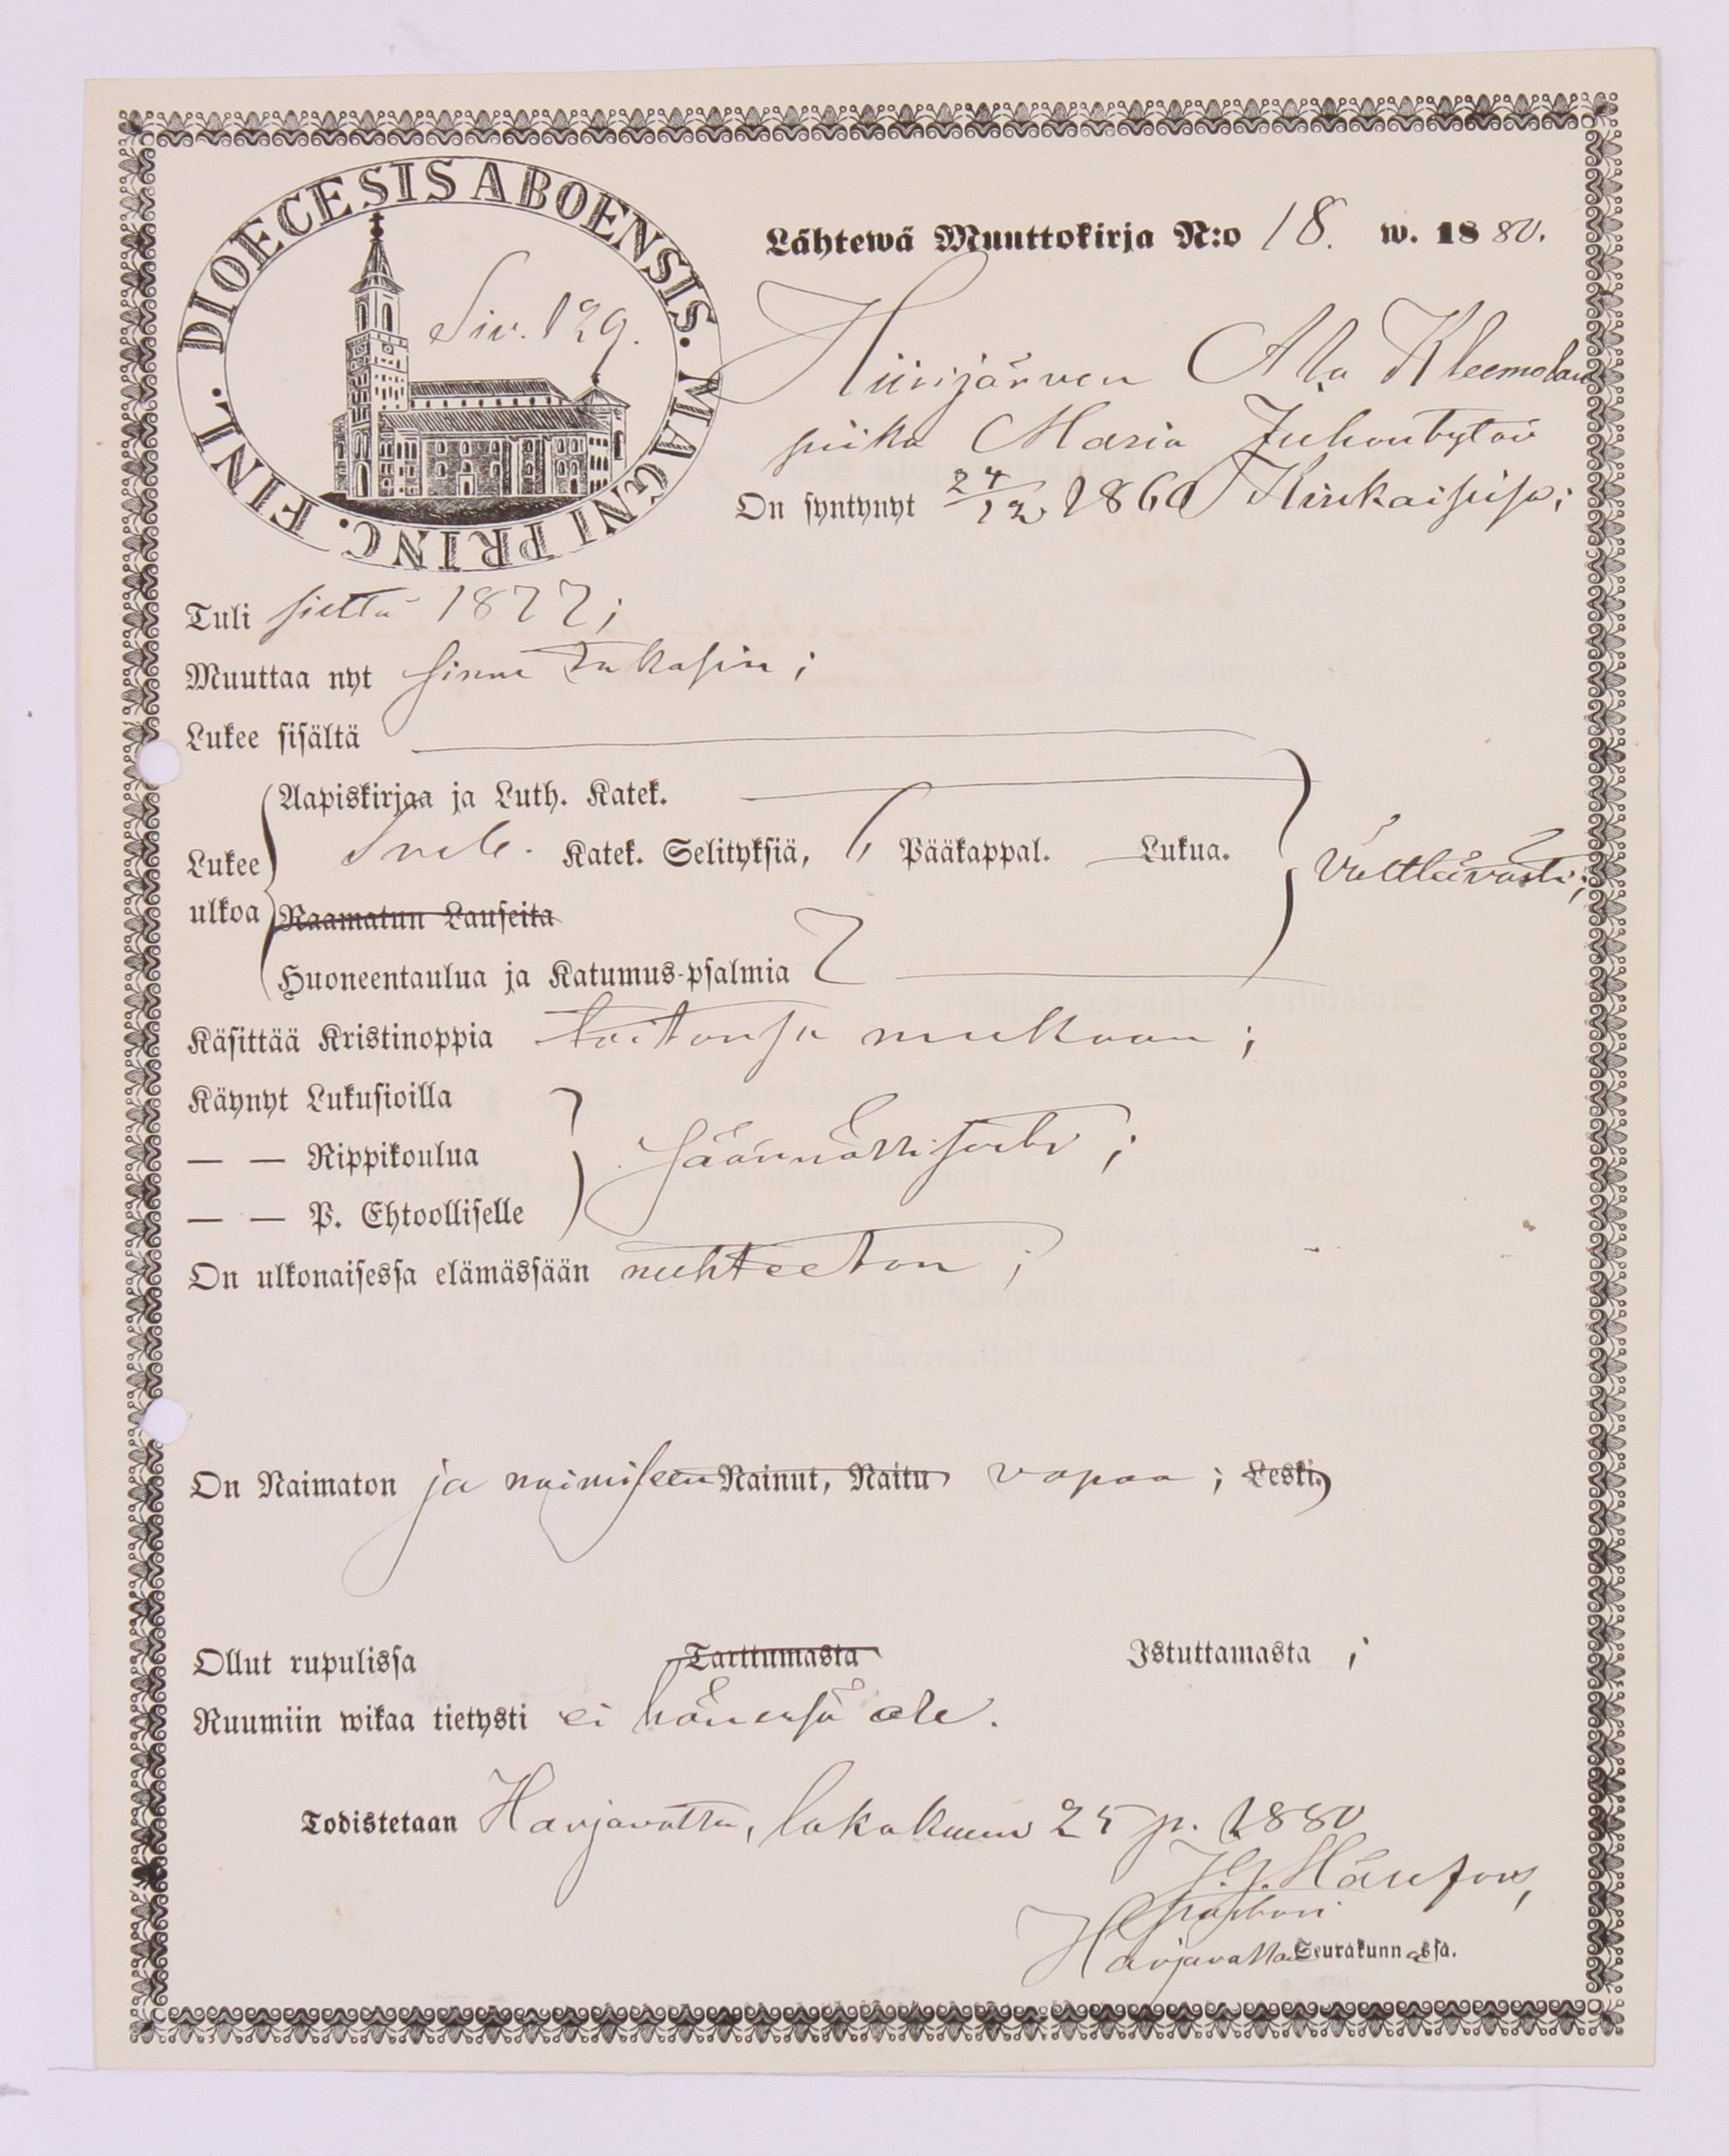 DIOECESIS ABOENSIS. MAGNI PRINC. FINL.
Siv. 129.
Lähtewä Muuttokirja N:o 18. w. 1880.
Hiirijärven Ala Kleemolan
piika Maria Juhontytär
On syntynyt 24/12 1860 Kiukaisisa;
Tuli sieltä 1877;
Muuttaa nyt sinne takasin;
Lukee sisältä
Aapiskirjaa ja Luth. Katek.
Lukee Katek. Selityksiä, Pääkappal. Lukua. Välttävästi;
ulkoa Raamatun Lauseita
Huoneentaulua ja Katumus-psalmia 7
Käsittää Kristinoppia taitonsa mukaan;
Käynyt Lukusioilla
— — Rippikoulua säännöllisesti;
— — P. Ehtoolliselle
On ulkonaisessa elämässään nuhteeton;
On Naimaton ja naimiseen Nainut, Naitu vapaa; Leski,
Ollut rupulissa Tarttumasta Istuttamasta;
Ruumiin wikaa tietysti ei hänessä ole.
Todistetaan Harjavalta, lokakuun 25 p. 1880
Pastori
Harjavallan Seurakunnassa.